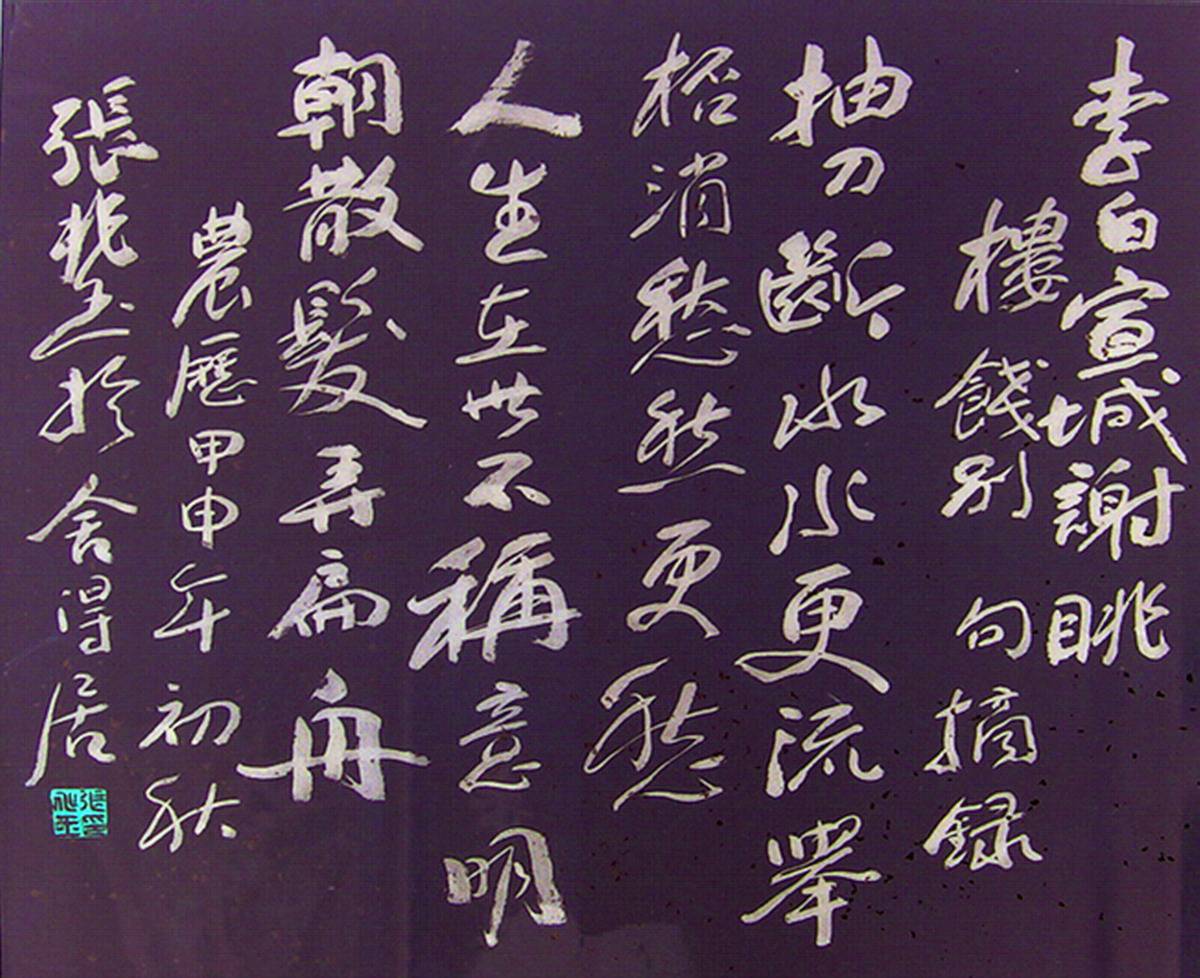 李白宣城謝眺
樓餞別句摘録
抽刀斷水水更流舉
桮消愁愁更愁
人生在世不稱意明
朝散髮弄扁舟
農歷甲申年初秋
張兆玉於舍得居